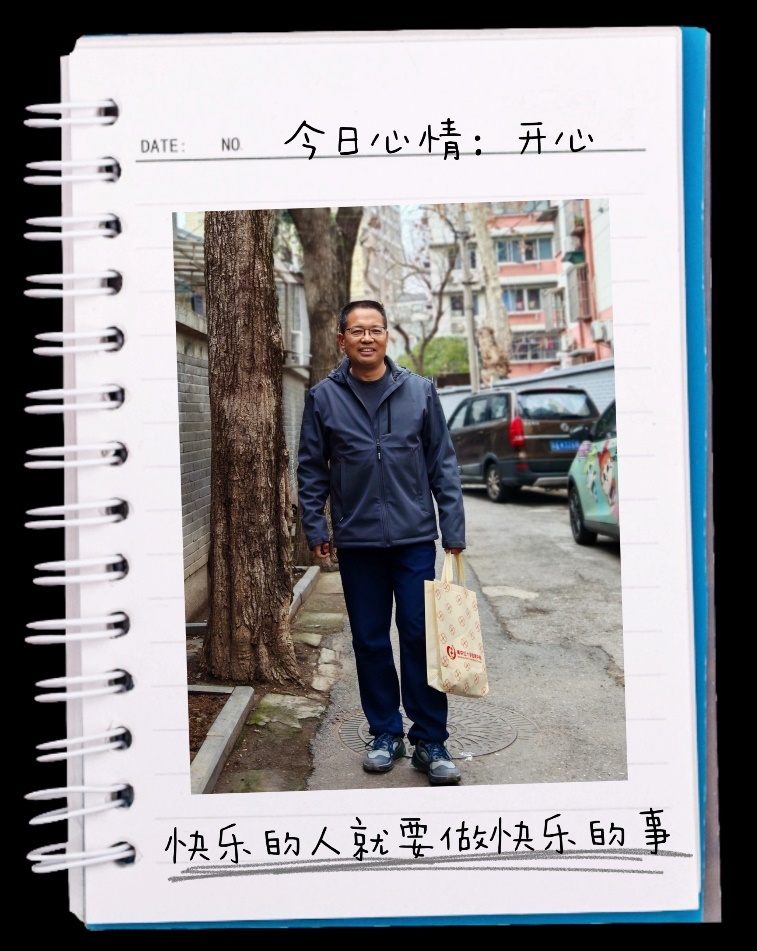 DATE: NO.
今日心情：开心
快乐的人就要做快乐的事